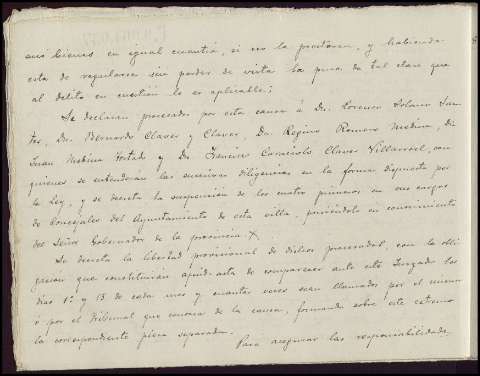 sus bienes en igual cuantía, si no la prestaren, y habiendo
esta de regularse sin perder de vista la pena de tal clase que
al delito en cuestión le es aplicable;
Se declaran procesados por esta causa á Dn. Lorenzo Solano San-
tos, Dn. Bernardo Claver y Claver, Dn. Regino Romero Medina, Dn.
Juan Medina Hurtado y Dn. Francisco Claver Villarroel, con
quienes se entenderán las sucesivas diligencias en la forma dispuesta por
la Ley, y se decreta la suspensión de los cuatro primeros en sus cargos
de Concejales del Ayuntamiento de esta villa, poniéndolo en conocimiento
del Señor Gobernador de la provincia X
Se decreta la libertad provisional de dichos procesados, con la obli-
gación que constituirán apud-acta de comparecer ante este Juzgado los
días 1º y 15 de cada mes y cuantas veces sean llamados por el mismo
ó por el Tribunal que conozca de la causa, formando sobre este extremo
la correspondiente pieza separada.
Para asegurar las responsabilidades